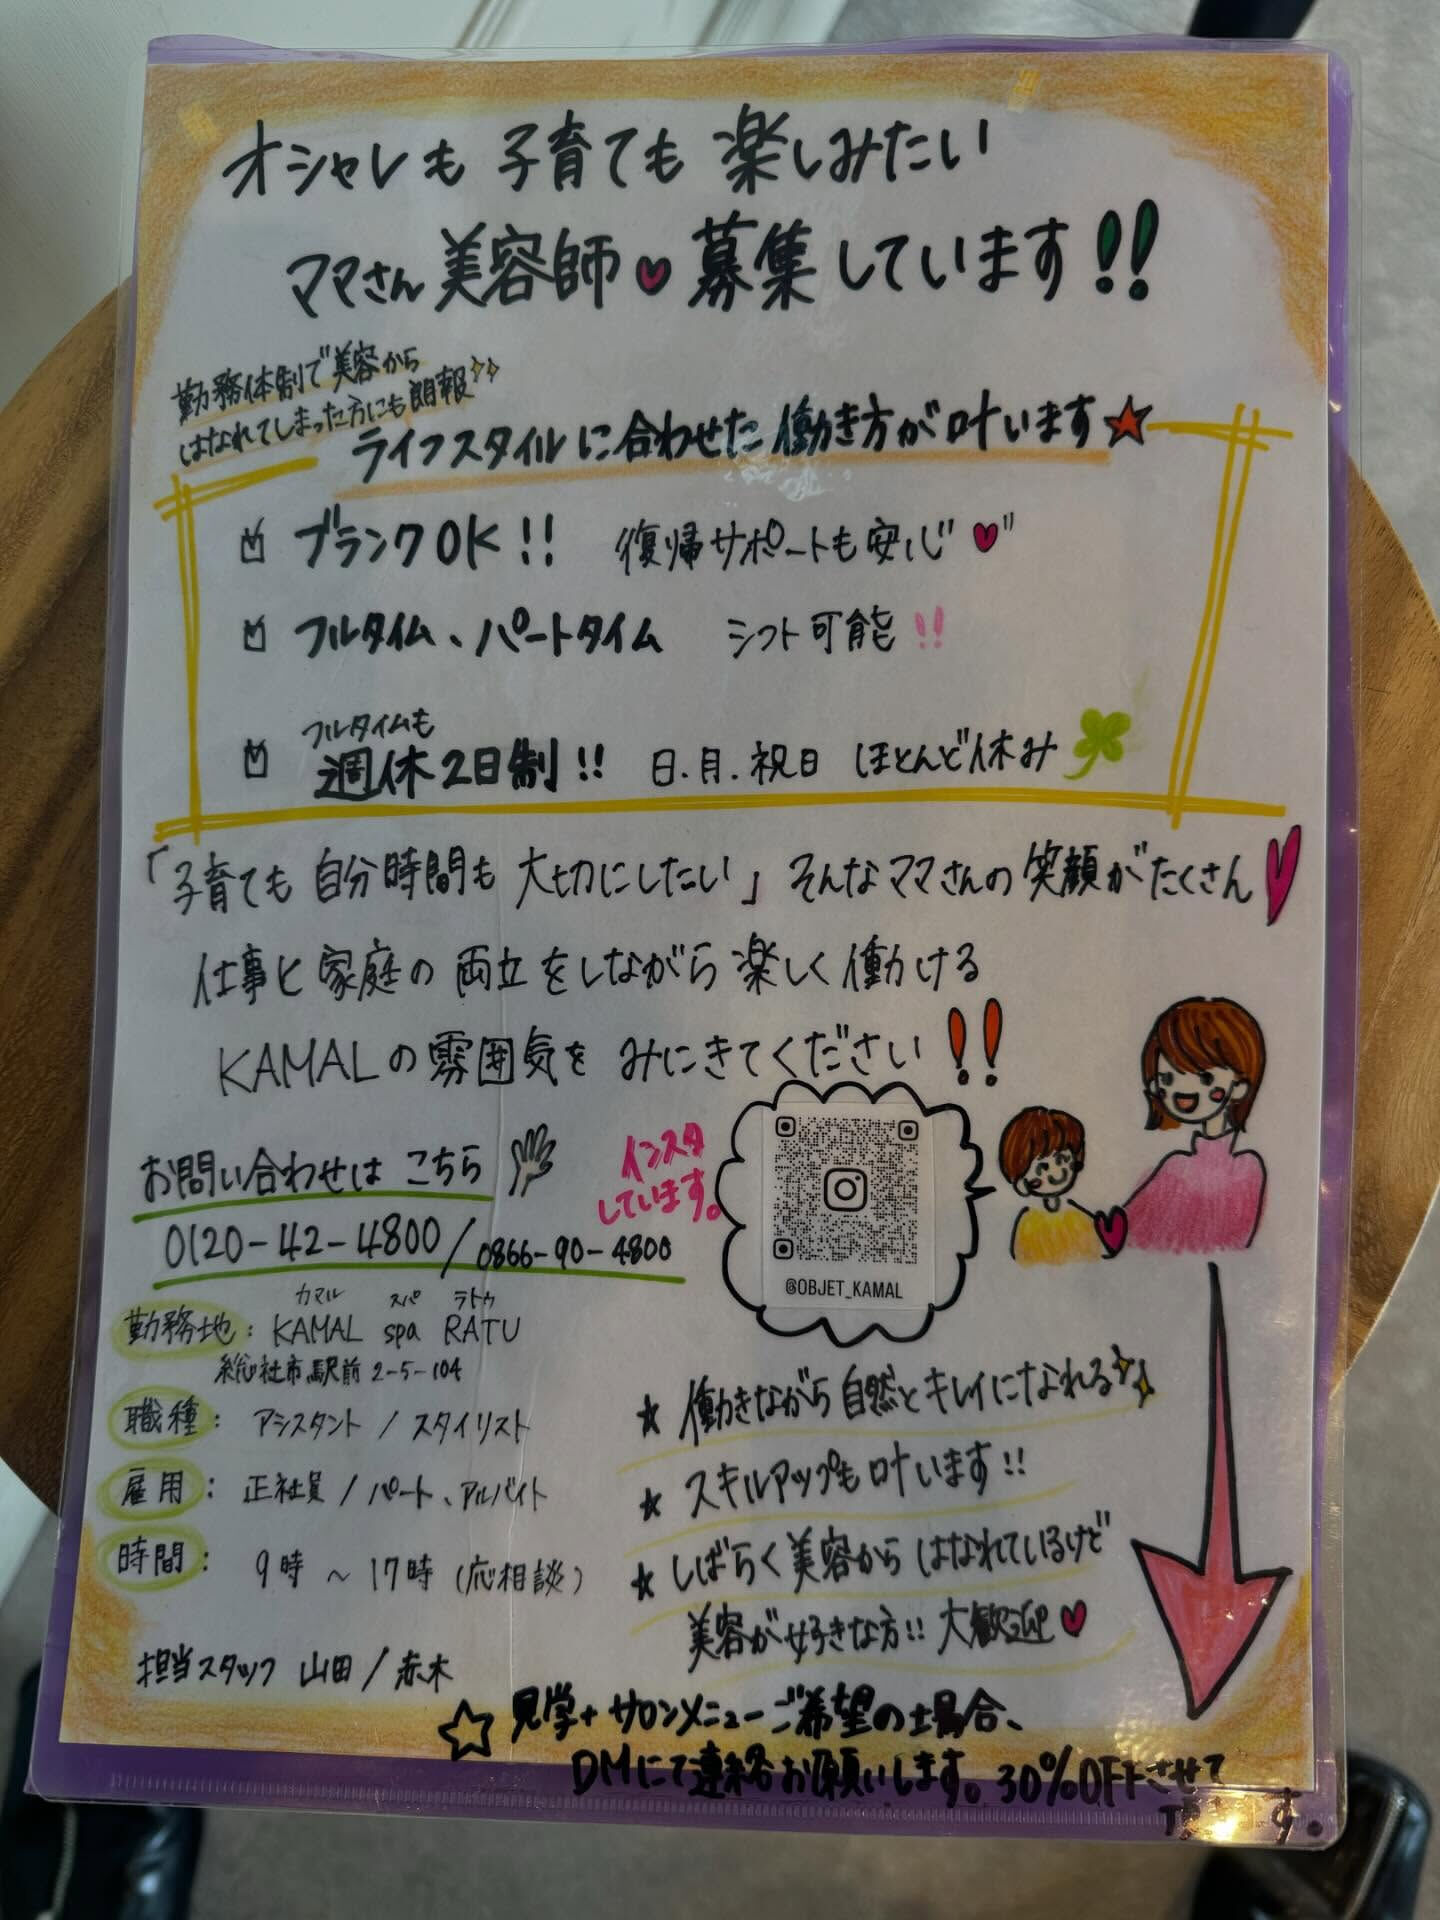 オシャレも 子育ても 楽しみたい
ママさん 美容師 募集しています!!
勤務体制で美容から
はなれてしまった方にも朗報
ライフスタイルに合わせた 働き方が叶います
ブランクOK!! 復帰サポートも安心
フルタイム、パートタイム シフト可能!!
フルタイムも
週休2日制!! 日.月.祝日 ほとんど休み
「子育ても 自分時間も 大切にしたい」そんなママさんの笑顔がたくさん
仕事と家庭の両立をしながら楽しく働ける
KAMALの雰囲気を みにきてください!!
お問い合わせは こちら
0120-42-4800/0866-90-4800
インスタ
しています。
@OBJET_KAMAL
カマル スパ ラトゥ
勤務地: KAMAL spa RATU
総社市駅前2-5-104
職種: アシスタント / スタイリスト
雇用: 正社員 / パート、アルバイト
時間: 9時 ~ 17時 (応相談)
担当スタッフ 山田/赤木
★ 働きながら自然とキレイになれる
★ スキルアップも叶います!!
★ しばらく美容から はなれているけど
美容が好きな方!! 大歓迎
☆ 見学+サロンメニューご希望の場合、
DMにて連絡お願いします。30%OFFさせて